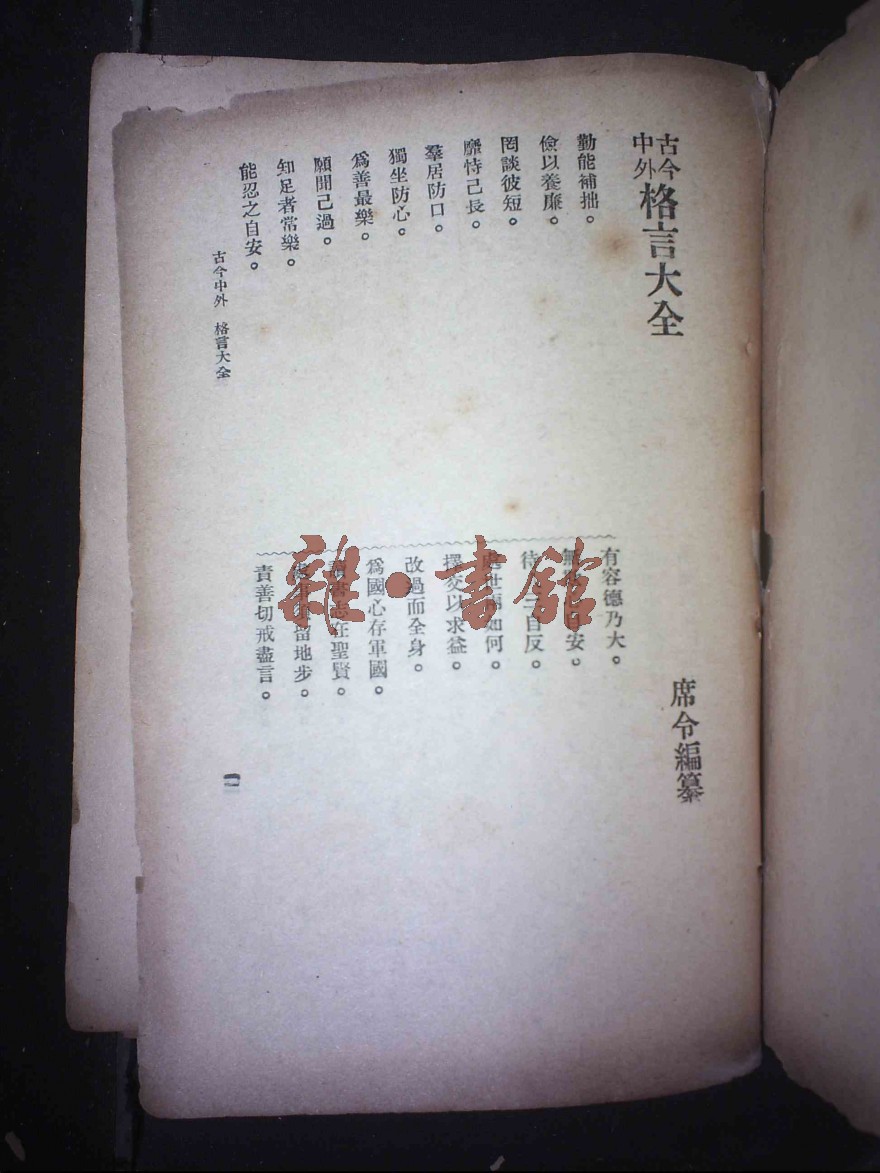 古今
中外
格言大全
席令編纂
勤能補拙。
儉以養廉。
罔談彼短。
靡恃己長。
羣居防口。
獨坐防心。
爲善最樂。
願聞己過。
知足者常樂。
能忍之自安。
有容德乃大。
無安。
待自反。
處世如何。
擇交以求益。
改過而全身。
爲國心存軍國。
讀書志在聖賢。
留地步。
責善切戒盡言。
古今中外 格言大全
一
雜·書館